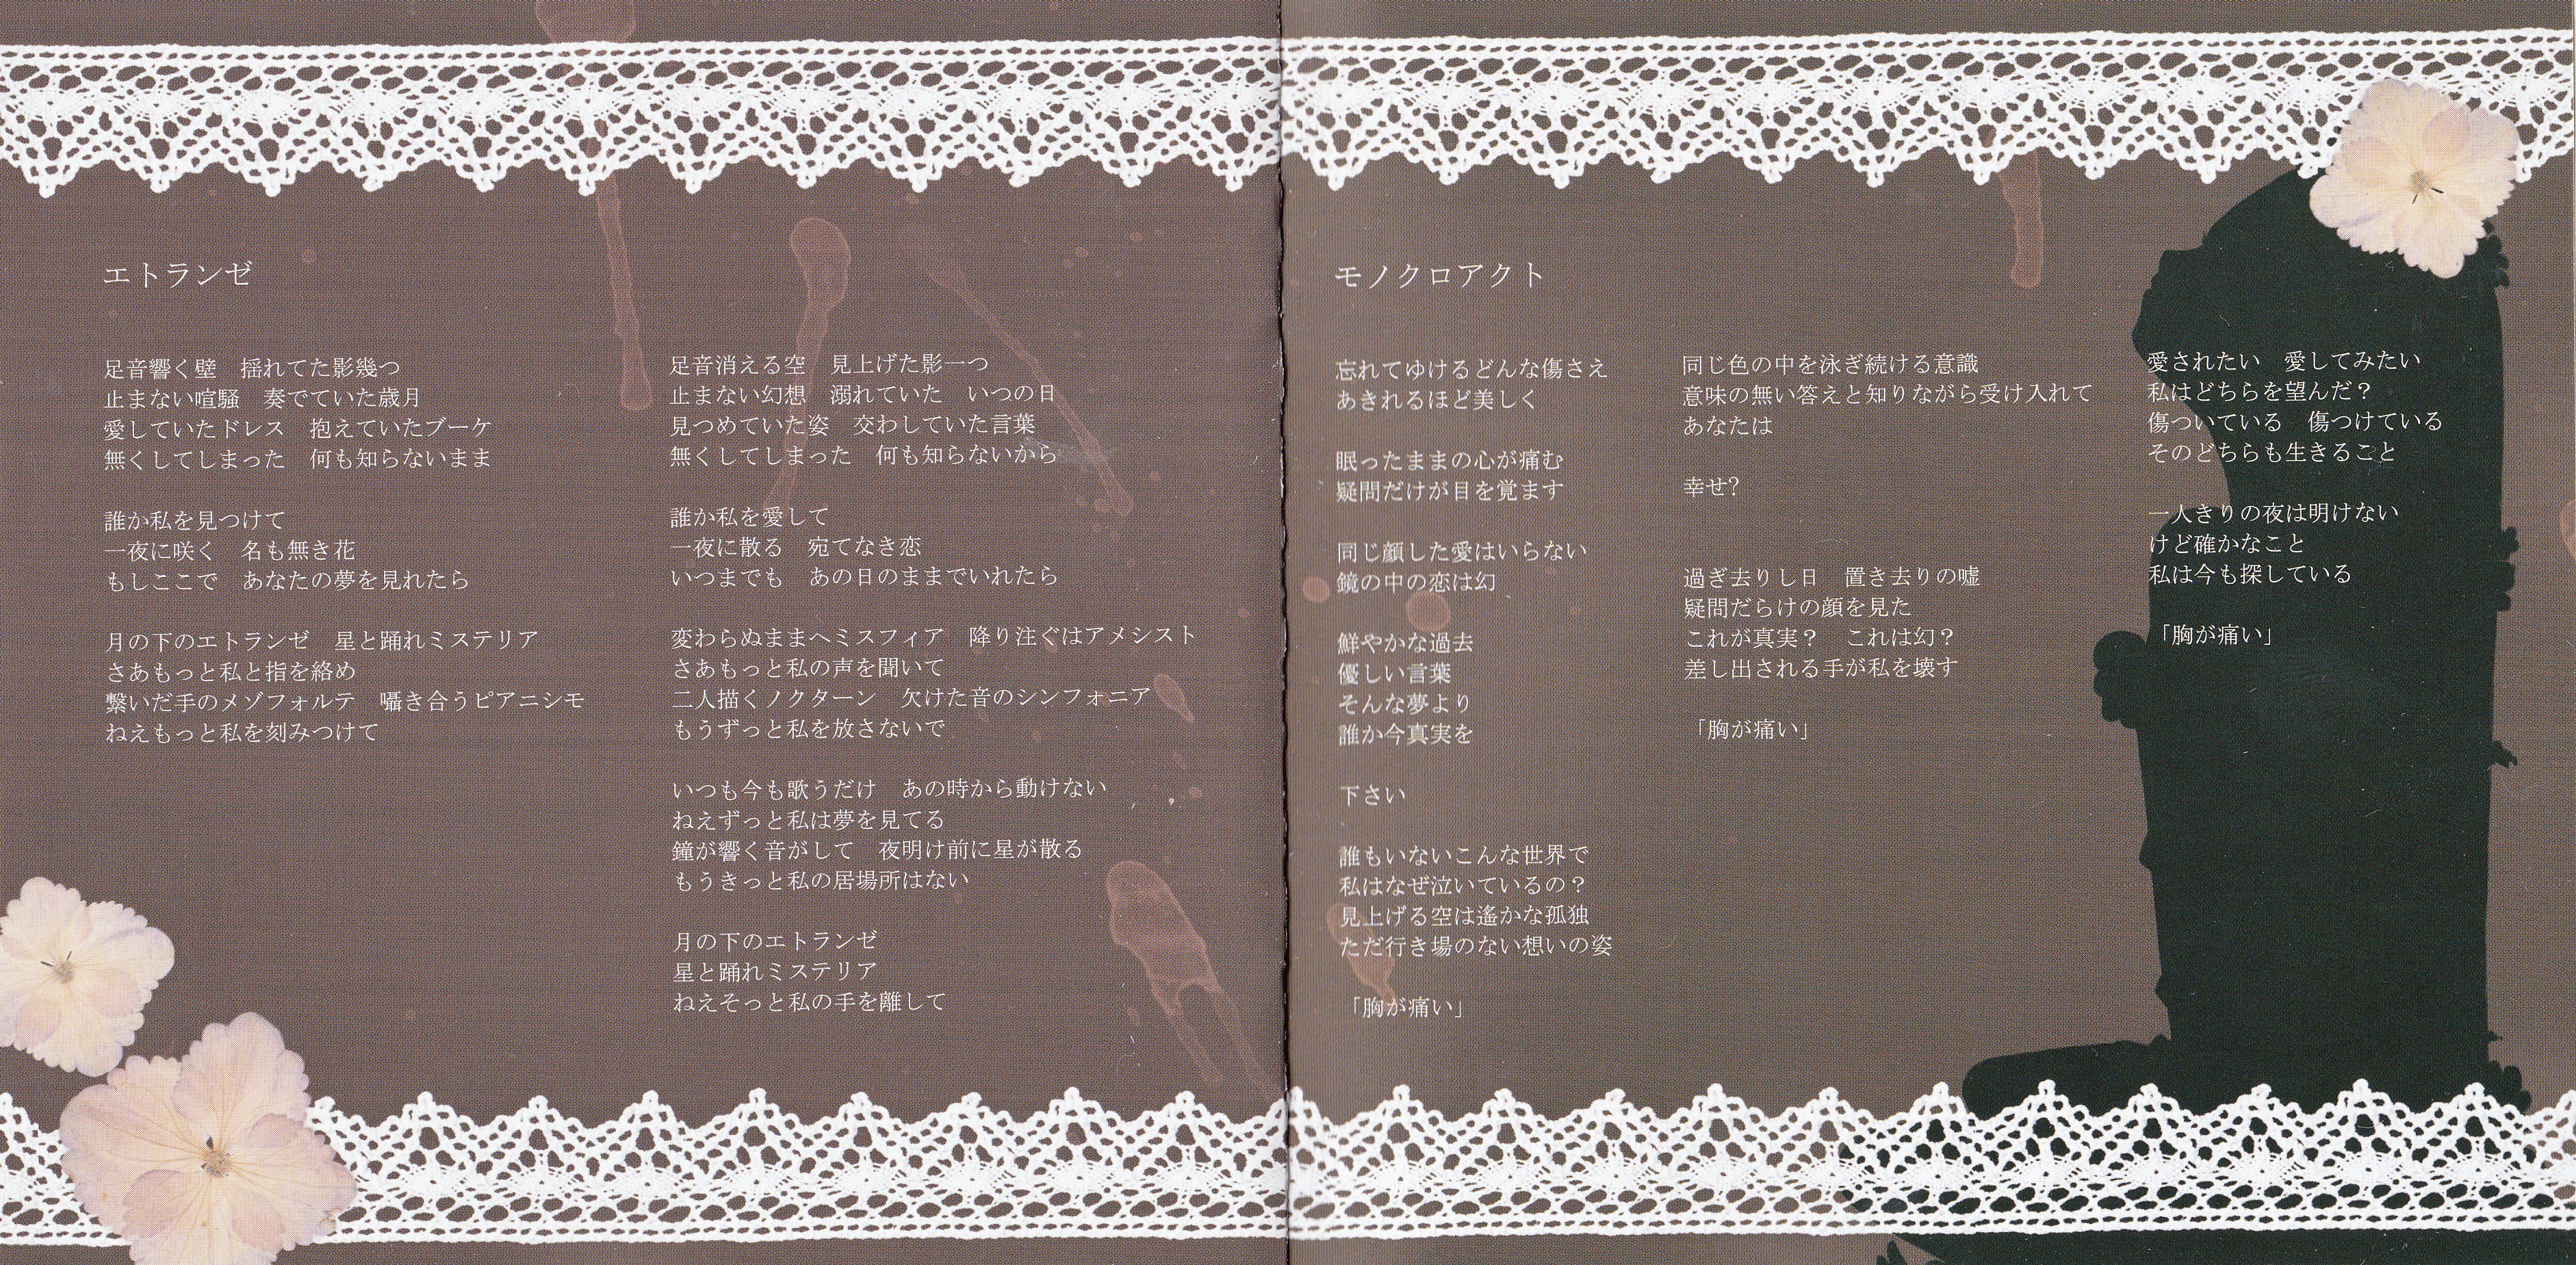 エトランゼ
足音響く壁　揺れてた影幾つ
止まない喧騒　奏でていた歳月
愛していたドレス　抱えていたブーケ
無くしてしまった　何も知らないまま
誰か私を見つけて
一夜に咲く　名も無き花
もしここで　あなたの夢を見れたら
月の下のエトランゼ　星と踊れミステリア
さあもっと私と指を絡め
繋いだ手のメゾフォルテ　囁き合うピアニシモ
ねえもっと私を刻みつけて
足音消える空　見上げた影一つ
止まない幻想　溺れていた　いつの日
見つめていた姿　交わしていた言葉
無くしてしまった　何も知らないから
誰か私を愛して
一夜に散る　宛てなき恋
いつまでも　あの日のままでいれたら
変わらぬままへミスフィア　降り注ぐはアメシスト
さあもっと私の声を聞いて
二人描くノクターン　欠けた音のシンフォニア
もうずっと私を放さないで
いつも今も歌うだけ　あの時から動けない
ねえずっと私は夢を見てる
鐘が響く音がして　夜明け前に星が散る
もうきっと私の居場所はない
月の下のエトランゼ
星と踊れミステリア
ねえそっと私の手を離して
モノクロアクト
忘れてゆけるどんな傷さえ
あきれるほど美しく
眠ったままの心が痛む
疑問だけが目を覚ます
同じ顔した愛はいらない
鏡の中の恋は幻
鮮やかな過去
優しい言葉
そんな夢より
誰か今真実を
下さい
誰もいないこんな世界で
私はなぜ泣いているの？
見上げる空は遙かな孤独
ただ行き場のない想いの姿
「胸が痛い」
同じ色の中を泳ぎ続ける意識
意味の無い答えと知りながら受け入れて
あなたは
幸せ?
過ぎ去りし日　置き去りの嘘
疑問だらけの顔を見た
これが真実？　これは幻？
差し出される手が私を壊す
「胸が痛い」
愛されたい　愛してみたい
私はどちらを望んだ？
傷ついている　傷つけている
そのどちらも生きること
一人きりの夜は明けない
けど確かなこと
私は今も探している
「胸が痛い」